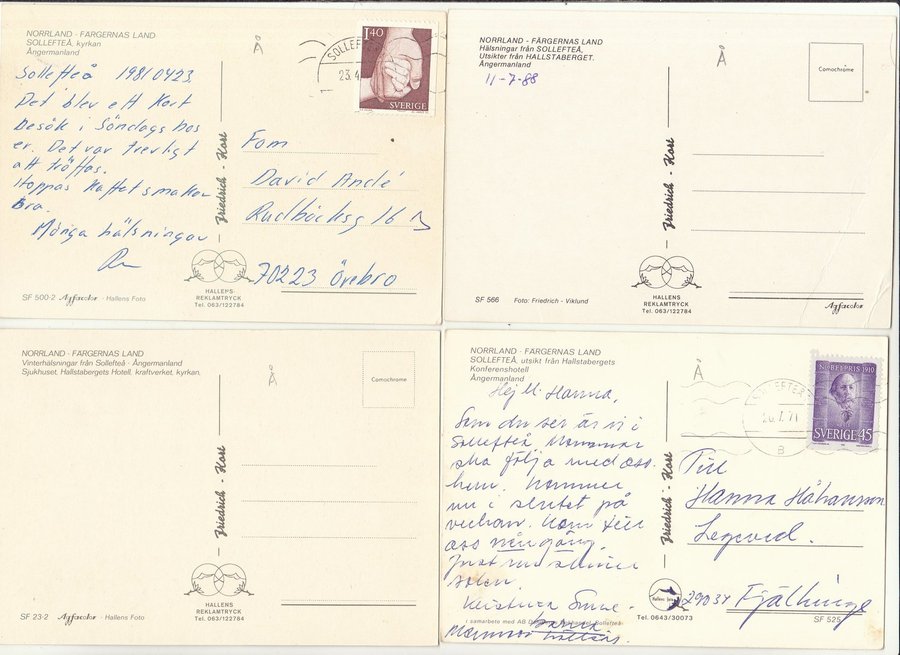 NORRLAND - FÄRGERNAS LAND
SOLLEFTEÅ, kyrkan
Ångermanland
Å
Sollefteå 19810423
Det blev ett kort
besök i Söndags hos
er. Det var trevligt
att träffas.
Hoppas Kaffet smakar
bra.
Många hälsningar
SOLLEFTEÅ
23.4
1.40
SVERIGE
Fam
David André
Rudbäcksg 16 B
70223 Örebro
Friedrich - Kort
HALLENS
REKLAMTRYCK
Tel. 063/122784
SF 500-2 Agfacolor - Hallens Foto
NORRLAND - FÄRGERNAS LAND
Hälsningar från SOLLEFTEÅ,
Utsikter från HALLSTABERGET.
Ångermanland
11-7-88
Å
Comochrome
Friedrich - Kort
HALLENS
REKLAMTRYCK
Tel. 063/122784
SF 566 Foto: Friedrich - Viklund
Agfacolor
NORRLAND - FÄRGERNAS LAND
Vinterhälsningar från Sollefteå - Ångermanland
Sjukhuset, Hallstabergets Hotell, kraftverket, kyrkan.
Å
Comochrome
Friedrich - Kort
HALLENS
REKLAMTRYCK
Tel. 063/122784
SF 23-2 Agfacolor - Hallens Foto
NORRLAND - FÄRGERNAS LAND
SOLLEFTEÅ, utsikt från Hallstabergets
Konferenshotell
Ångermanland
Å
Hej Hanna,
Som du ser är vi i
Sollefteå Mamma
ska följa med oss
hem. Kommer
nu i slutet på
veckan. Kom till
oss någon gång.
Just nu skiner
solen.
Mamma hälsas
SOLLEFTEÅ
B
NOBELPRIS 1910
SVERIGE 45
Till
Hanna Håkansson
Legeved.
29034 Fjälkinge
Friedrich - Kort
Tel. 0643/30073
I samarbete med AB
Sollefteå
SF 525